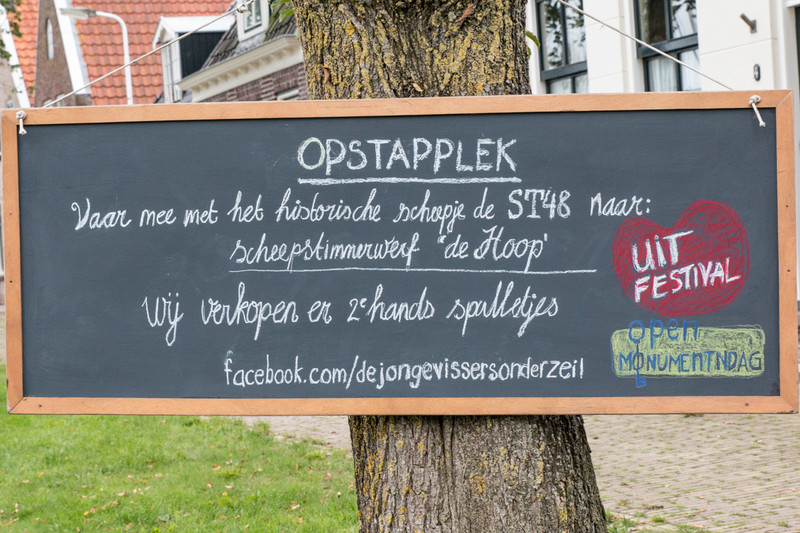 OPSTAPPLEK
Vaar mee met het historische scheepje de ST48 naar:
scheepstimmerwerf "de Hoop"
Wij verkopen er 2e hands spulletjes
facebook.com/dejongevissersonderzeil
UIT
FESTIVAL
open
MONUMENTNDAG